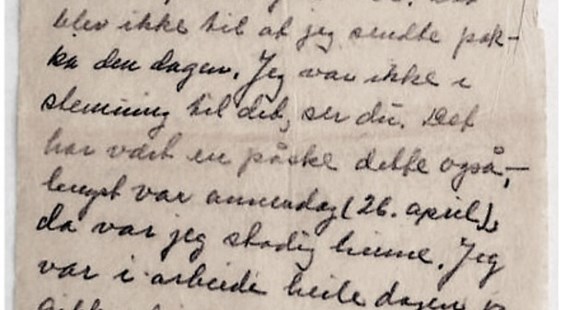 blev ikke til at jeg sendte pak-
ka den dagen. Jeg var ikke i
stemning til det, ser du. Det
har vært en påske dette også,-
langst var annendag (26. april),
da var jeg stadig hinne. Jeg
var i arbeide heile dagen